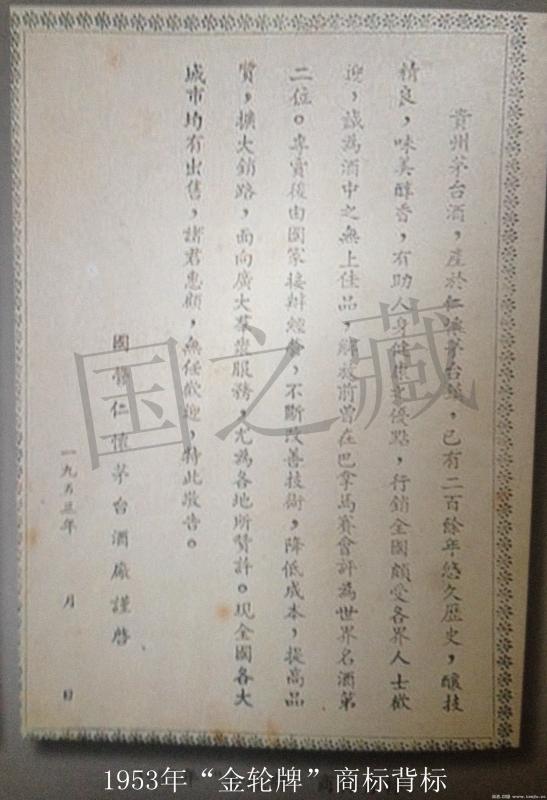 貴州茅台酒，產於仁懷茅台鎮，已有二百餘年悠久歷史，釀技
精良，味美醇香，有助人身健康之優點，行銷全國頗受各界人士歡
迎，誠為酒中之無上佳品，解放前曾在巴拿馬賽會評為世界名酒第
二位。專賣後由國家接辦經營，不斷改善技術，降低成本，提高品
質，擴大銷路，面向廣大羣衆服務，尤為各地所贊許。現全國各大
城市均有出售，諸君惠顧，無任歡迎，特此敬告。
國營仁懷茅台酒廠謹啓
一九五三年 月 日
国之藏
1953年“金轮牌”商标背标